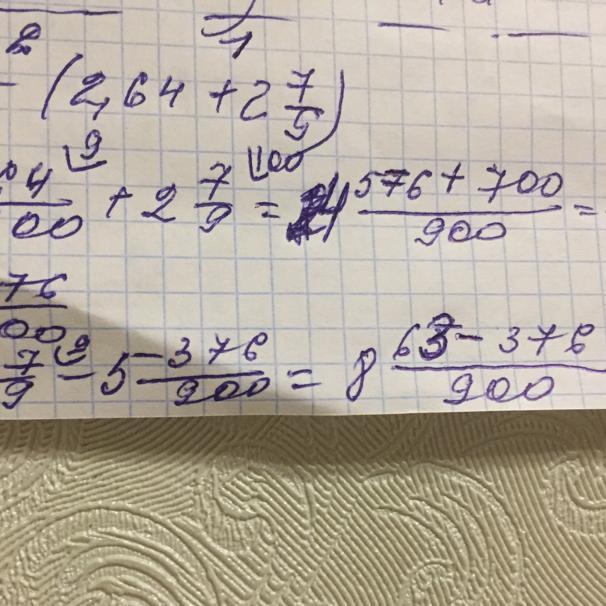 2
1
- (2,64 + 2 7/9)
64/100 + 2 7/9 = 4 576 + 700/900 =
76/00
7/9 - 5 376/900 = 8 63 - 376/900